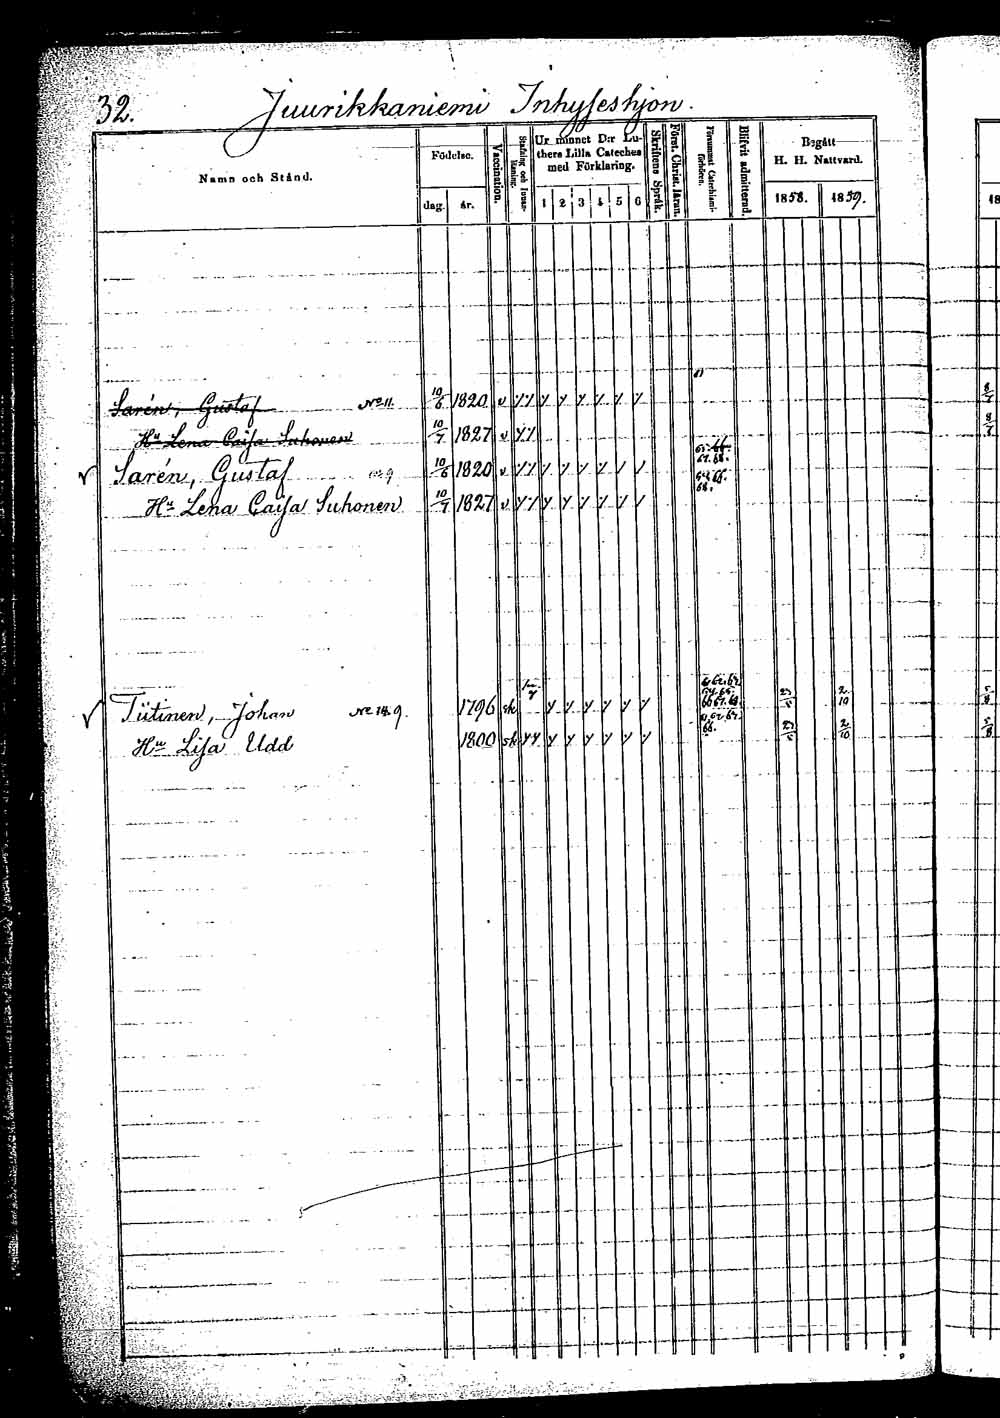 32. Juurikkaniemi Inhyseshjon.
Namn och Stånd.
Födelse.
dag. år.
Vaccination.
Stafning och Innanläsning.
Ur minnet D:r Luthers Lilla Cateches med Förklaring.
1 2 3 4 5 6
Skriftens Språk.
Först. Christ. läran.
Försummat Catechismiförhören.
Blifvit admitterad.
Begått H. H. Nattvard.
1858. 1859.
18
Sarén, Gustaf No 11. 10/6 1820 v y y y y y y y y
Hu Lena Caisa Suhonen 10/7 1827 v y y
Sarén, Gustaf no 9 10/6 1820 v y y y y y y y y
Hu Lena Caisa Suhonen 10/7 1827 v y y y y y y y y
Tiitinen, Johan No 14. 9. 1796 sk y y y y y y 2/10
Hu Lisa Udd 1800 sk y y y y y y y y 2/10